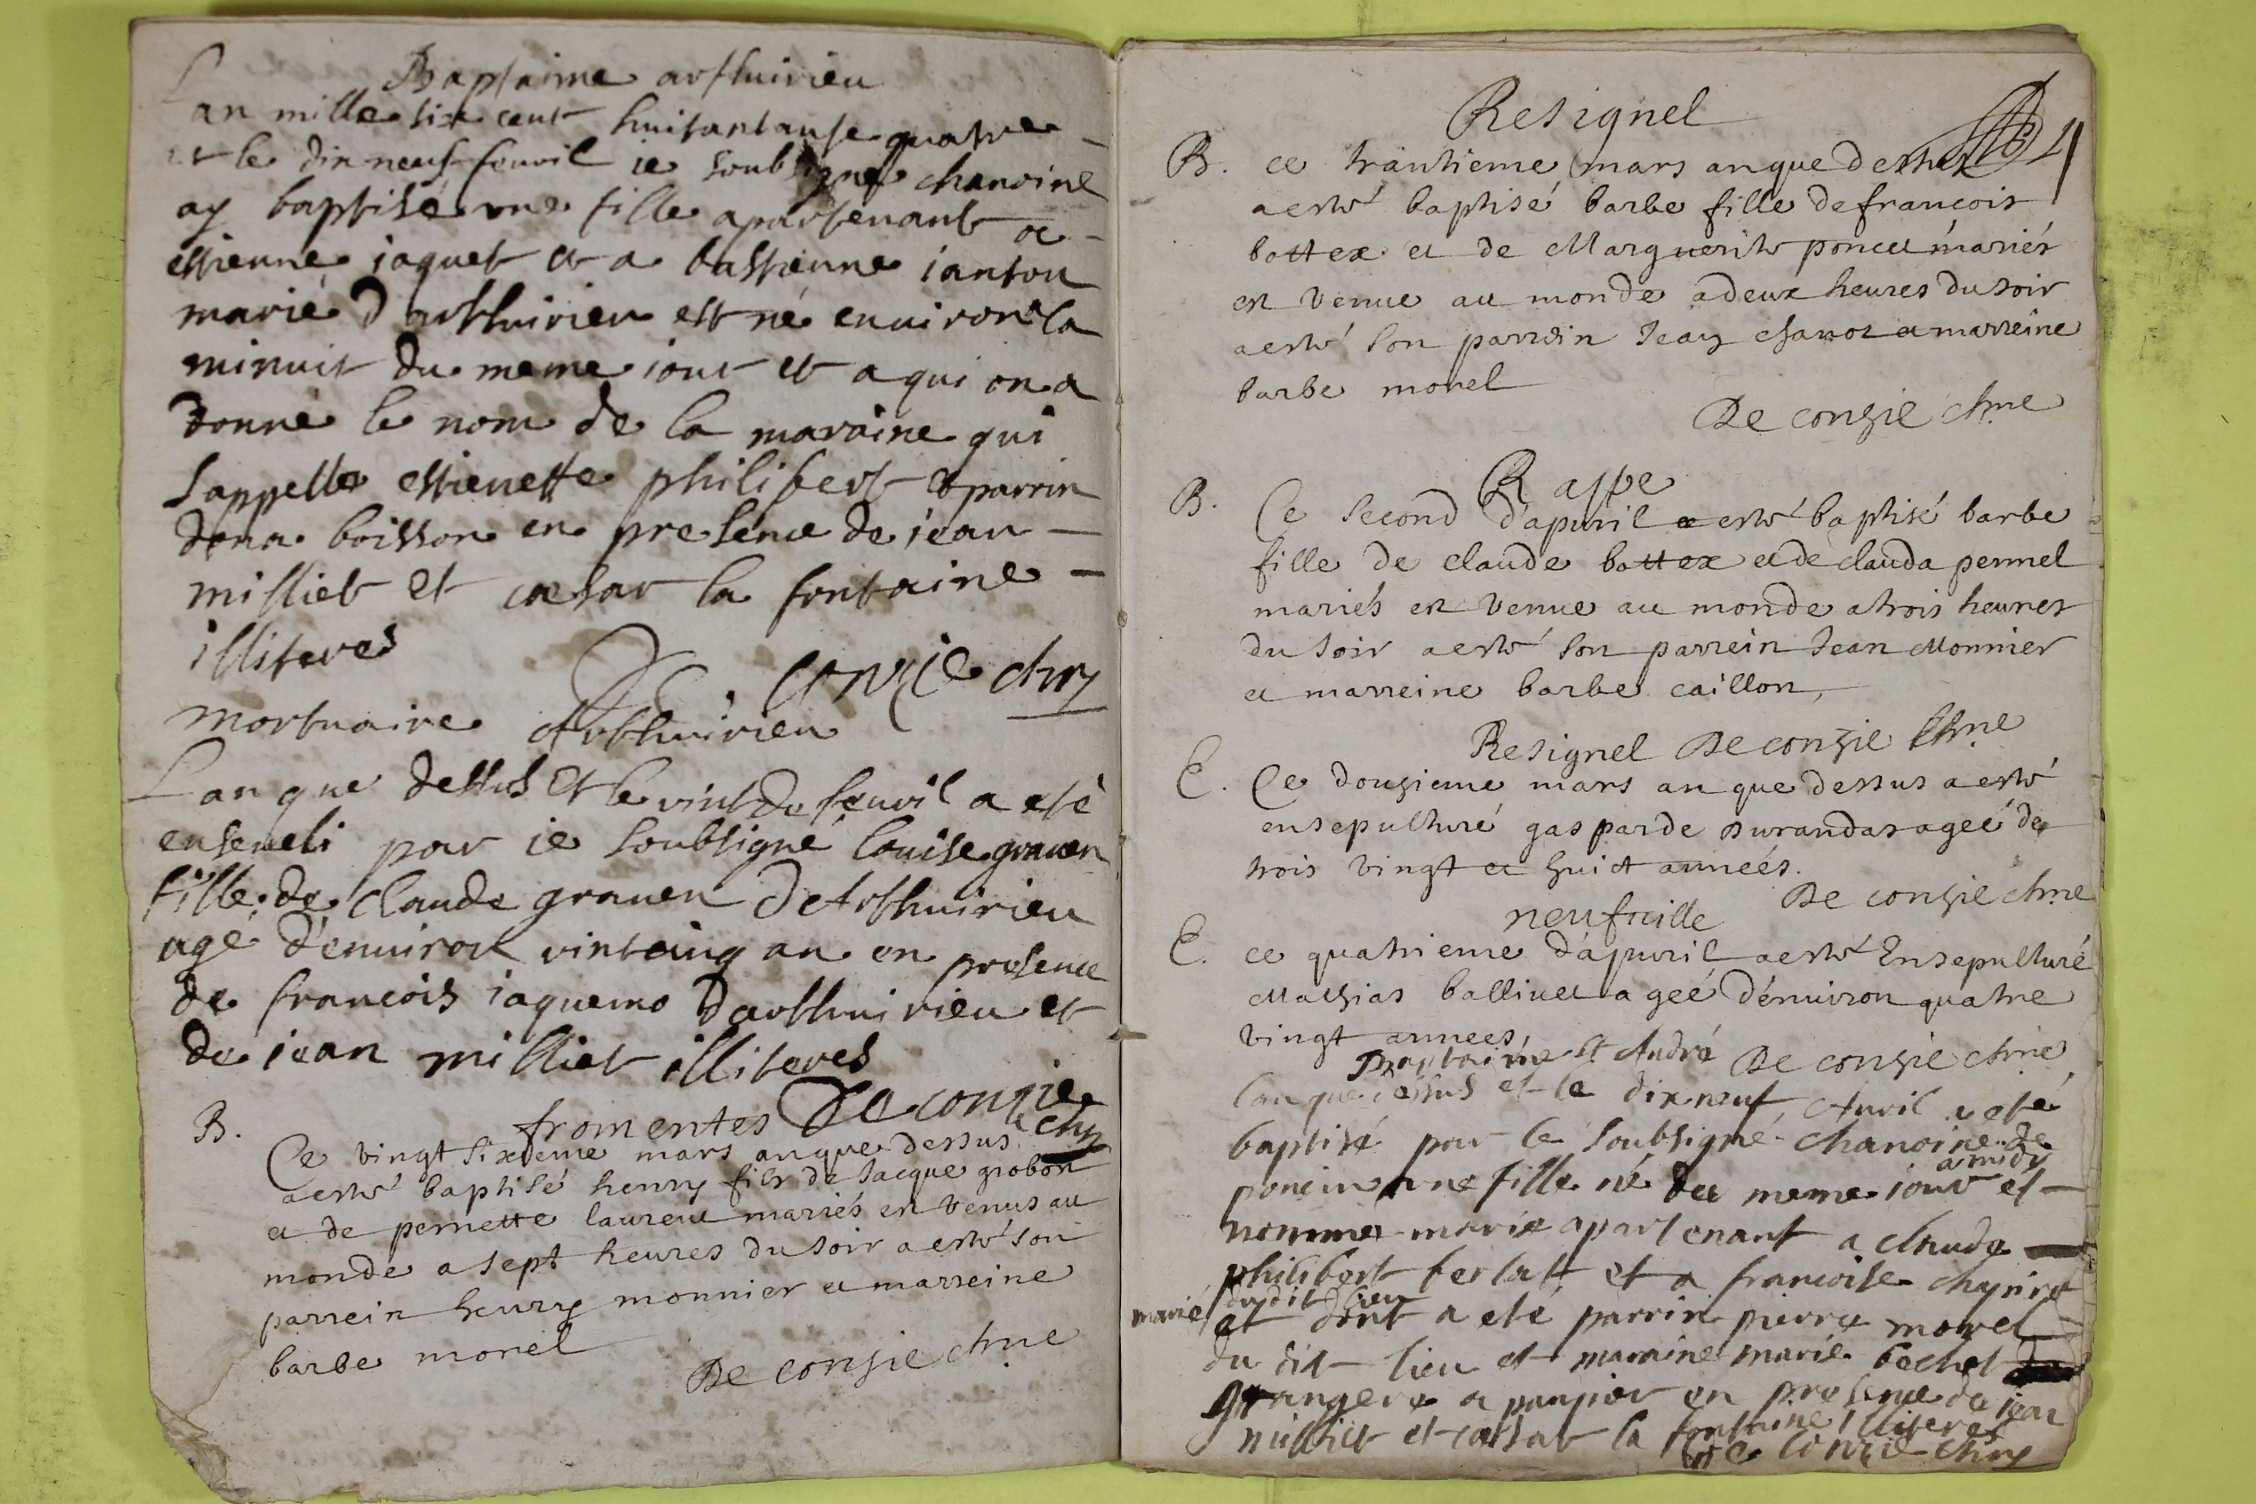 Baptaime arthuirieu
Lan mille six cent huitantause quatre
et le dix neuf feuvil ie soubsigné chanoine
ay baptisé une fille apartenant a
estienne iaquet et a bastienne ianton
marié darthuirieu est né environ la
minuit du meme iour et a qui on a
donné le nom de la maraine qui
sappelle estienette philibert et parrin
boisson en presence de iean
milliet et cæsar la fontaine
illiteres
De Conzie chny
mortuaire Arthuirieu
Lan que dessus et le vint du feuvil a eté
enseveli par ie soubsigné louise graven
fille de Claude graven d'Arthuirieu
agé d'environ vintcinq an en presence
de francois iaquemo darthuirieu et
de iean milliet illiteres
fromentes De conzie chny
B. Ce vingt sixieme mars an que dessus
a esté baptisé henry fils de Jacque grobon
et de pernette laurent mariés est venus au
monde a sept heures du soir a esté son
parrein henry monnier et marreine
barbe morel
De conzie chne
Resignel
B. ce trantieme mars an que dessus
a esté baptisé barbe fille de francois
bottex et de Marguerite poncet mariés
est venue au monde a deux heures du soir
a esté son parrein Jean chanot et marreine
barbe morel
De conzie chne
Raspe
B. Ce second d'apuril a esté baptisé barbe
fille de claude bottex et de clauda pennel
mariés est venue au monde a trois heures
du soir a esté son parrein Jean Monnier
et marreine barbe caillon
Resignel De conzie chne
E. Ce douzieme mars an que dessus a esté
ensepulturé gasparde durandas ageé de
trois vingt et huict anneés.
De conzie chne
neufville
E. ce quatrieme d'apuril a esté Ensepulturé
Mathias ballivet ageé d'environ quatre
vingt annees
Baptaime St André De conzie chne
lan que dessus et le dix neuf Avril a eté
baptisé par le soubsigné chanoine de
a midy
poncin une fille né du meme iour et
nommé marie apartenant a claude
philibert berlatt et a francoise
marié dudit lieu
et dont a eté parrin pierre morel
du dit lieu et maraine marie bechet
grangere a panpier en presence de iean
milliet et cæsar la fontaine illiteres
De Conzie chny